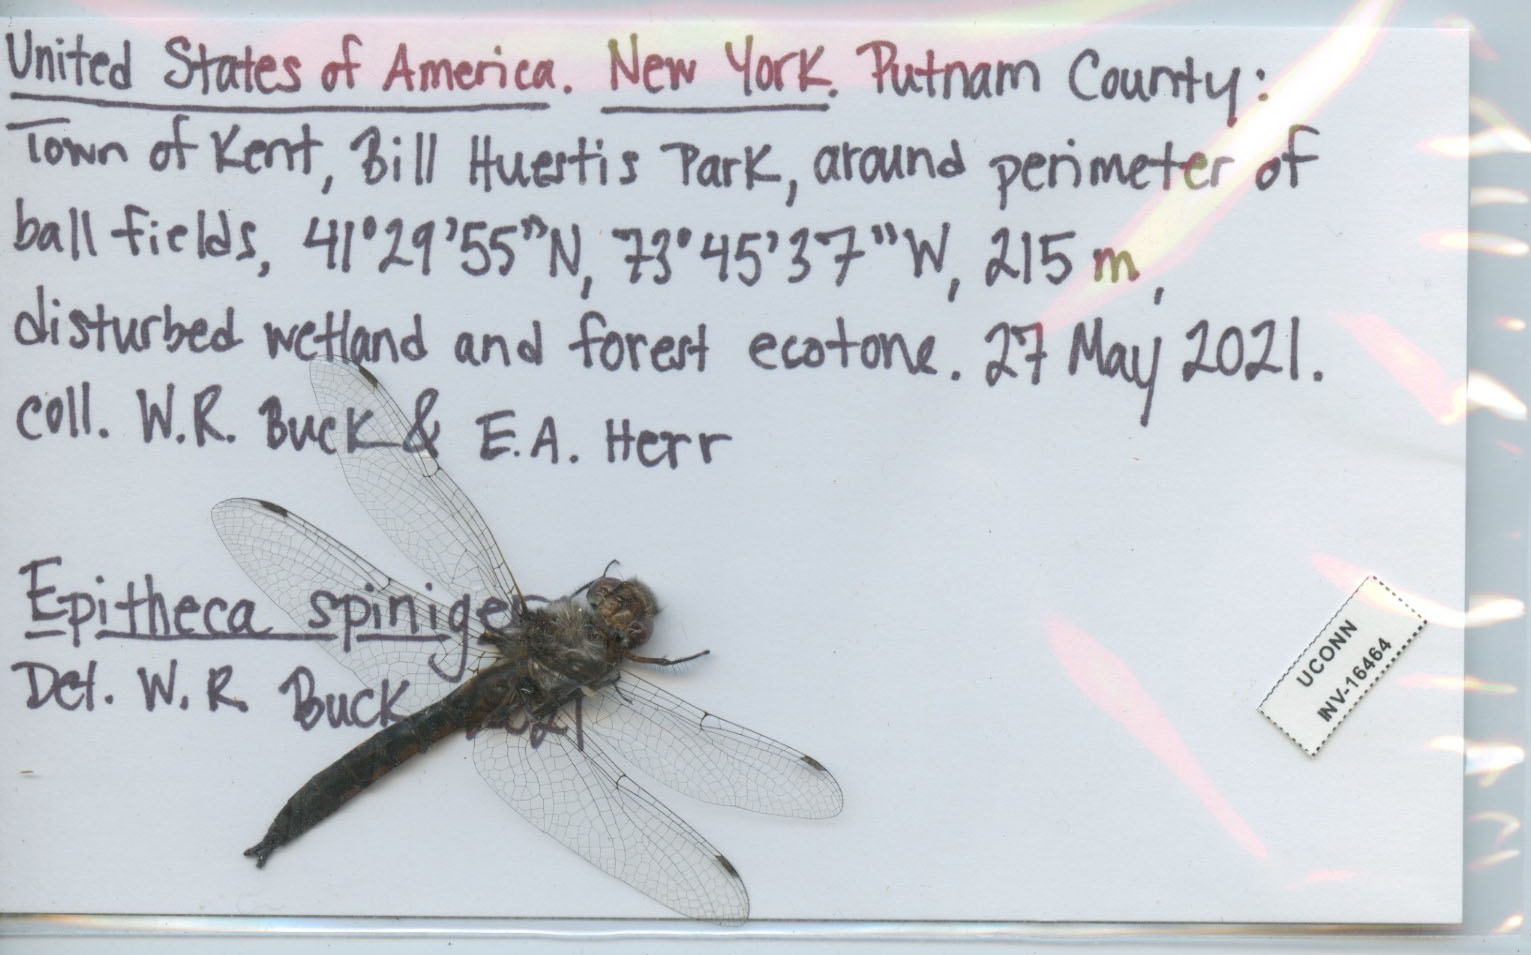 United States of America. New York. Putnam County:
Town of Kent, Bill Huestis Park, around perimeter of
ball fields, 41°29'55"N, 73°45'37"W, 215 m,
disturbed wetland and forest ecotone. 27 May 2021.
coll. W.R. Buck & E.A. Herr
Epitheca spiniger
Det. W.R. Buck 2021
UCONN
INV-16464